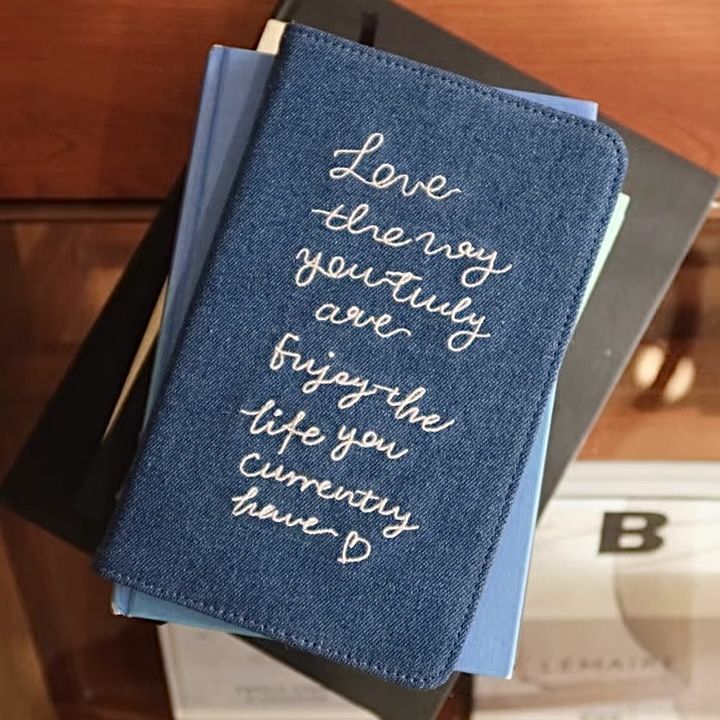 Love
the way
you truly
are
Enjoy the
life you
currently
have ♡
B
LEMAIRE